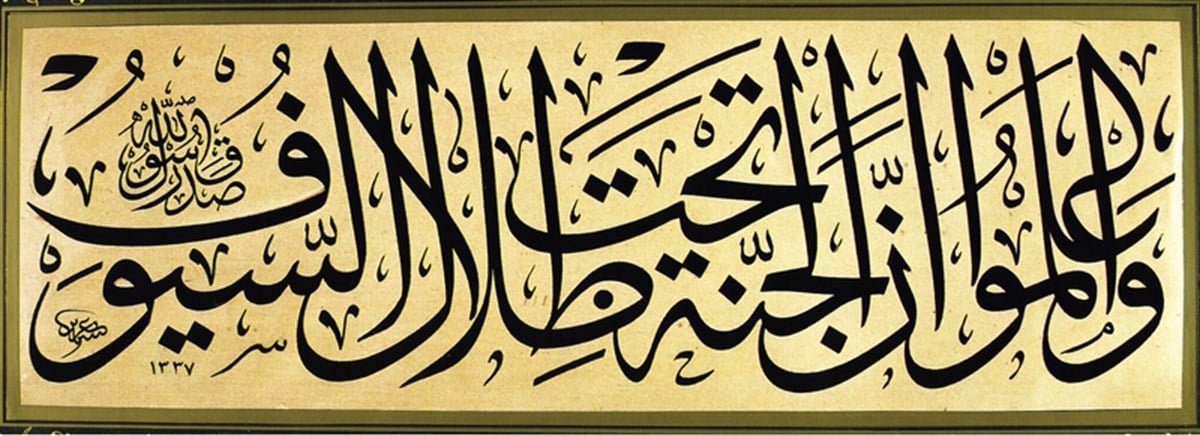 واعلموا انّ الجنّة تحت ظلال السّيوف
صدق رسول الله
١٣٣٧